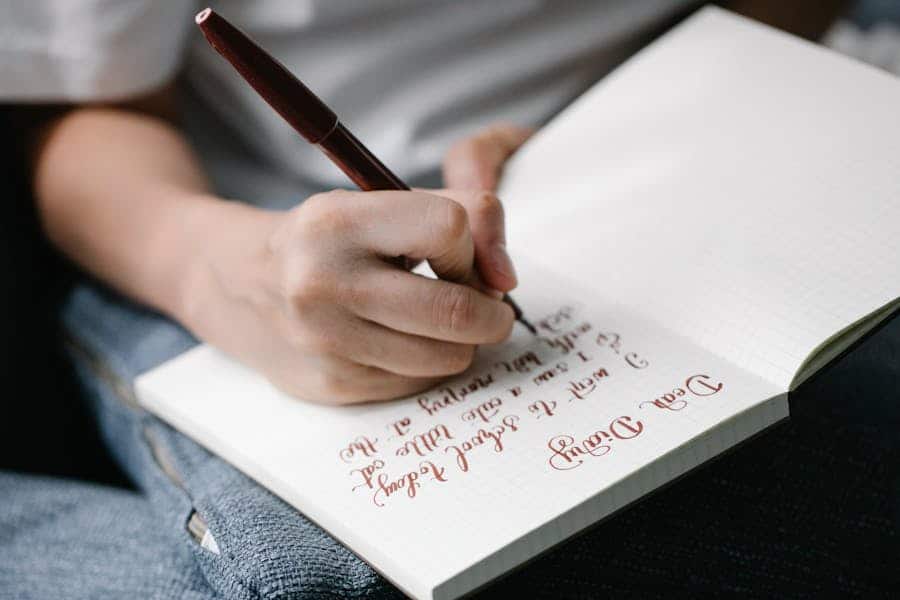 Dear Diary
I went to school today
I saw a cute little cat
mommy at the